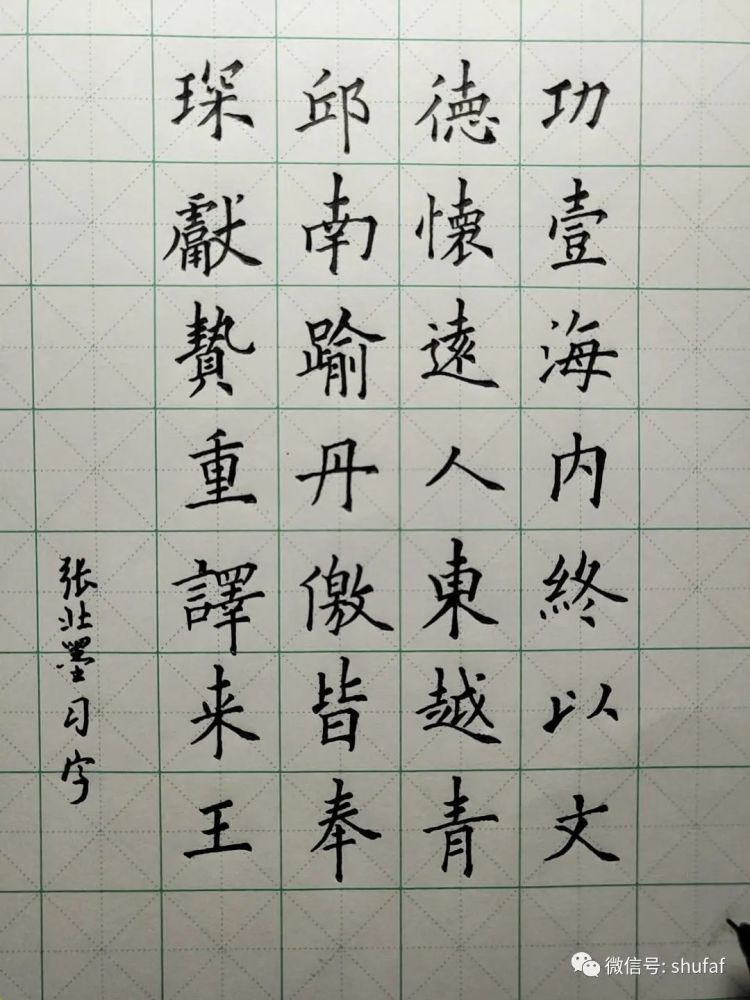 功壹海内終以文
德懷遠人東越青
邱南踰丹儌皆奉
琛獻贄重譯来王
张壯墨习字
微信号: shufaf